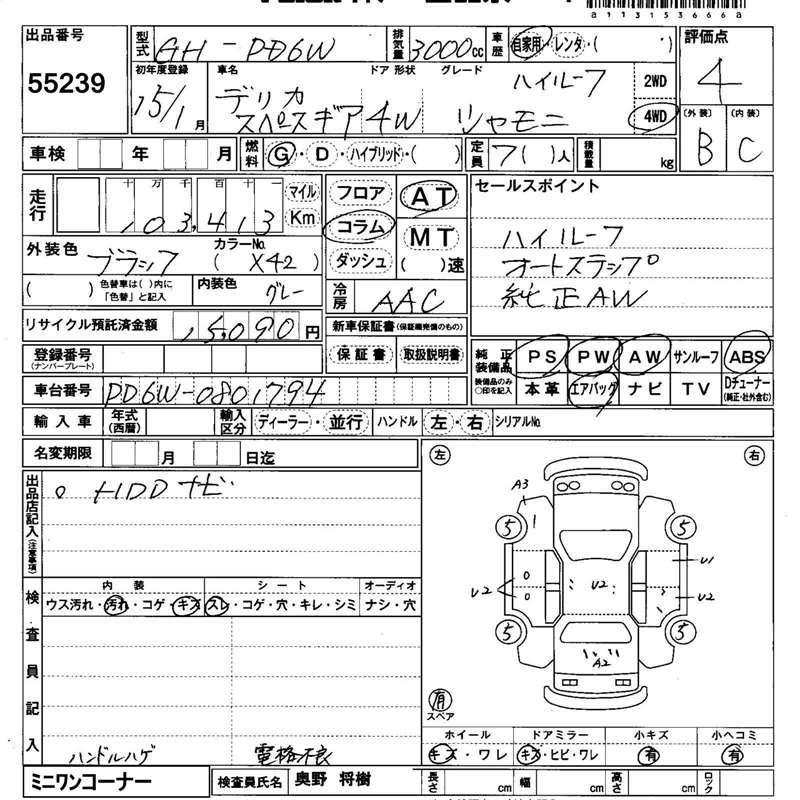 a113153666a
出品番号 型式 GH-PD6W 排気量 3000cc 車歴 自家用・レンタ・( ) 評価点
55239 初年度登録 車名 ドア 形状 グレード ハイルーフ 2WD 4
15/1月 デリカ
スペースギア 4W シャモニ 4WD (外装) (内装)
B C
車検 年 月 燃料 G・D・ハイブリッド・( ) 定員 7( )人 積載量 kg
走行 十万千百十一 マイル フロア AT セールスポイント
103,413 Km コラム MT
外装色 ブラック カラーNo. ( X42 ) ダッシュ ( )速 ハイルーフ
オートステップ
( ) 色替車は( )内に「色替」と記入 内装色 グレー 冷房 AAC 純正AW
リサイクル預託済金額 15,090円 新車保証書(保証継続完備のもの)
登録番号 (ナンバープレート) 保証書 取扱説明書 純正装備品 PS PW AW サンルーフ ABS
車台番号 PD6W-0801794 装備品のみ○印を記入 本革 エアバッグ ナビ TV Dチューナー (純正・社外含む)
輸入車 年式(西暦) 輸入区分 ディーラー・並行 ハンドル 左・右 シリアルNo.
名変期限 月 日迄 左 右
出品店記入(注意事項) ○ HDDナビ
A3
5 5
U1
U2 U2 U2
5 5
A2
検査員記入 内装 シート オーディオ
ウス汚れ・汚れ・コゲ・キズ スレ・コゲ・穴・キレ・シミ ナシ・穴
有
スペア
ホイール ドアミラー 小キズ 小ヘコミ
ハンドルハゲ 電格不良 キズ・ワレ キズ・ヒビ・ワレ 有 有
ミニワンコーナー 検査員氏名 奥野 将樹 長さ cm 幅 cm 高さ cm ロック